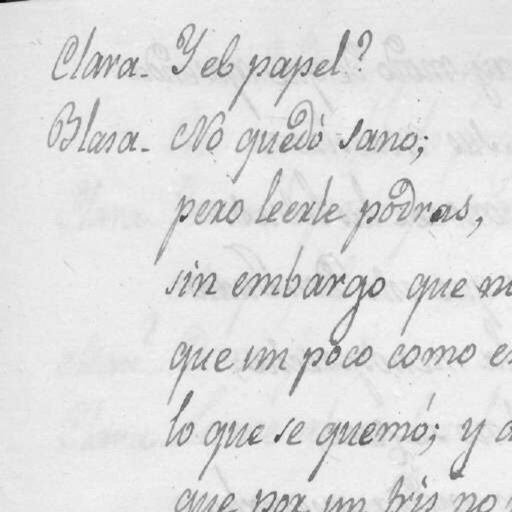 Clara. Y el papel?
Blasa. No quedó sano;
pero leerle podras,
sin embargo que
que un poco como
lo que se quemó; y
que por un tris no